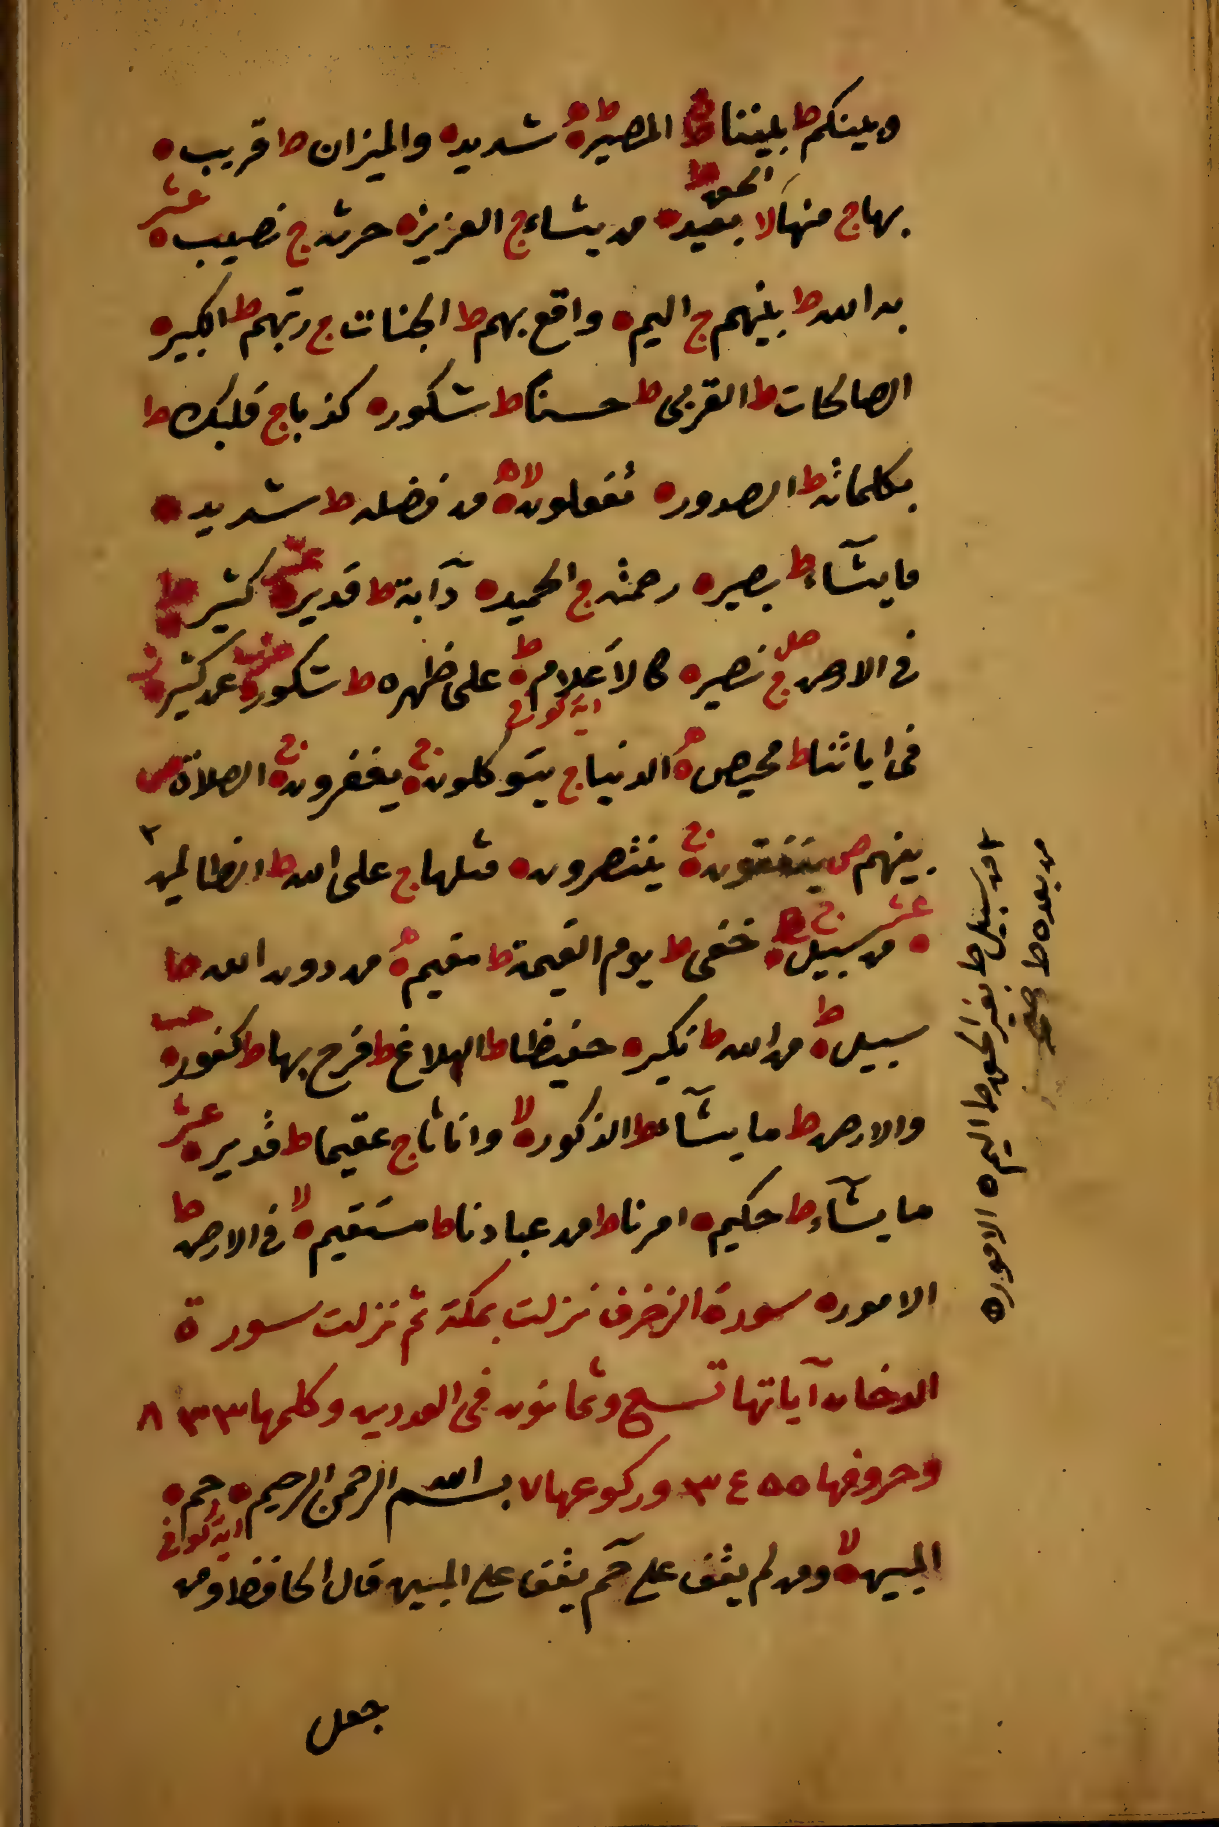 وبينكم ط بيننا ط المصير ه ط شديد ه والميزان ط قريب ه
بها ج منها لا الحق ط بعيد ه من يشاء ج العزيز ه حرثه ج نصيب ه عشر
به الله ط بينهم ج اليم ه واقع بهم ط الجنات ج ربهم ط الكبير ه
الصالحات ط القربى ط حسنا ط شكور ه كذبا ج قلبك ط
بكلماته ط الصدور ه تفعلون ه لا من فضله ط شديد ه
ما يشآء ط بصير ه رحمته ج الحميد ه دآبة ط قدير ه عشر كثير ط
في الارض ج صل نصير ه كالاعلام ه ط اية كوفى على ظهره ط شكور ه عن كثير ه
فى اياتنا ط محيص ه الدنيا ج يتوكلون ه ج يغفرون ه ج الصلاة ص
بينهم ص ينفقون ه ج ينتصرون ه مثلها ج على الله ط الظالمين ٢
عشر ه من سبيل ه ج خفى ط يوم القيمة ط مقيم ه من دون الله ط
سبيل ه ط من الله ط نكير ه حفيظا ط البلاغ ط فرح بها ط كفور ه
والارض ط ما يشآء ط الذكور ه لا واناثا ج عقيما ط قدير ه عشر
ما يشآء ط حكيم ه امرنا ط من عبادنا ط مستقيم ه لا في الارض ط
الامور ه سورة الزخرف نزلت بمكة ثم نزلت سورة
الدخان آياتها تسع وثمانون فى العددين وكلمها ٨٣٣
وحروفها ٣٤٥٥ وركوعها ٧ بسم الله الرحمن الرحيم ه حم ه اية كوفى
المبين ه لا ومن لم يقف على حم يقف على المبين قال الحافظ ومن
جعل
من سبيل ط بغير الحق ط اليم ه الامور ه
من بعده ط